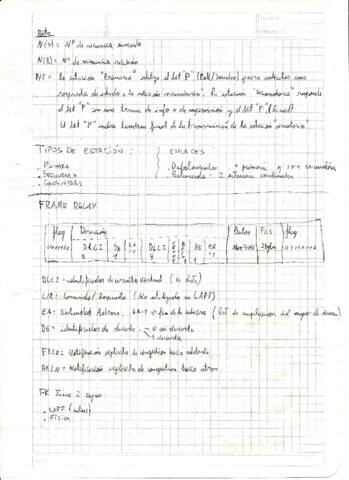 Data
N(s) = Nº de secuencia enviado
N(R) = Nº de secuencia recibido
P/F = La estación "Primaria" utiliza el bit "P" (Poll/sondeo) para solicitar una
respuesta de estado a la estación secundaria. La estación "secundaria" responde
el bit "P" en una trama de info o de supervisión y el bit "F" (final)
El bit "F" indica la trama final de la transmisión de la estación "secundaria".
TIPOS DE ESTACIÓN :
ENLACES :
. PRIMARIA
. SECUNDARIA
. COMBINADAS
. Desbalanceado : 1 primaria y 1 o + secundarias
. Balanceado : 2 estaciones combinadas
FRAME RELAY
flag Dirección Datos FCS flag
DLCI DLCI
DLCI = identificador de circuito virtual (10 bits)
C/R = Comando/Respuesta (No utilizado en LAPF)
EA = Extended Address. EA=1 → fin de la cabecera (bit de ampliación del campo de direcc)
DE = identificador de descarte 0 no descarte
1 descarte
FECN = Notificación explícita de congestión hacia adelante
BECN = Notificación explícita de congestión hacia atras.
FR Tiene 2 capas
. LAPF (enlace)
. Física